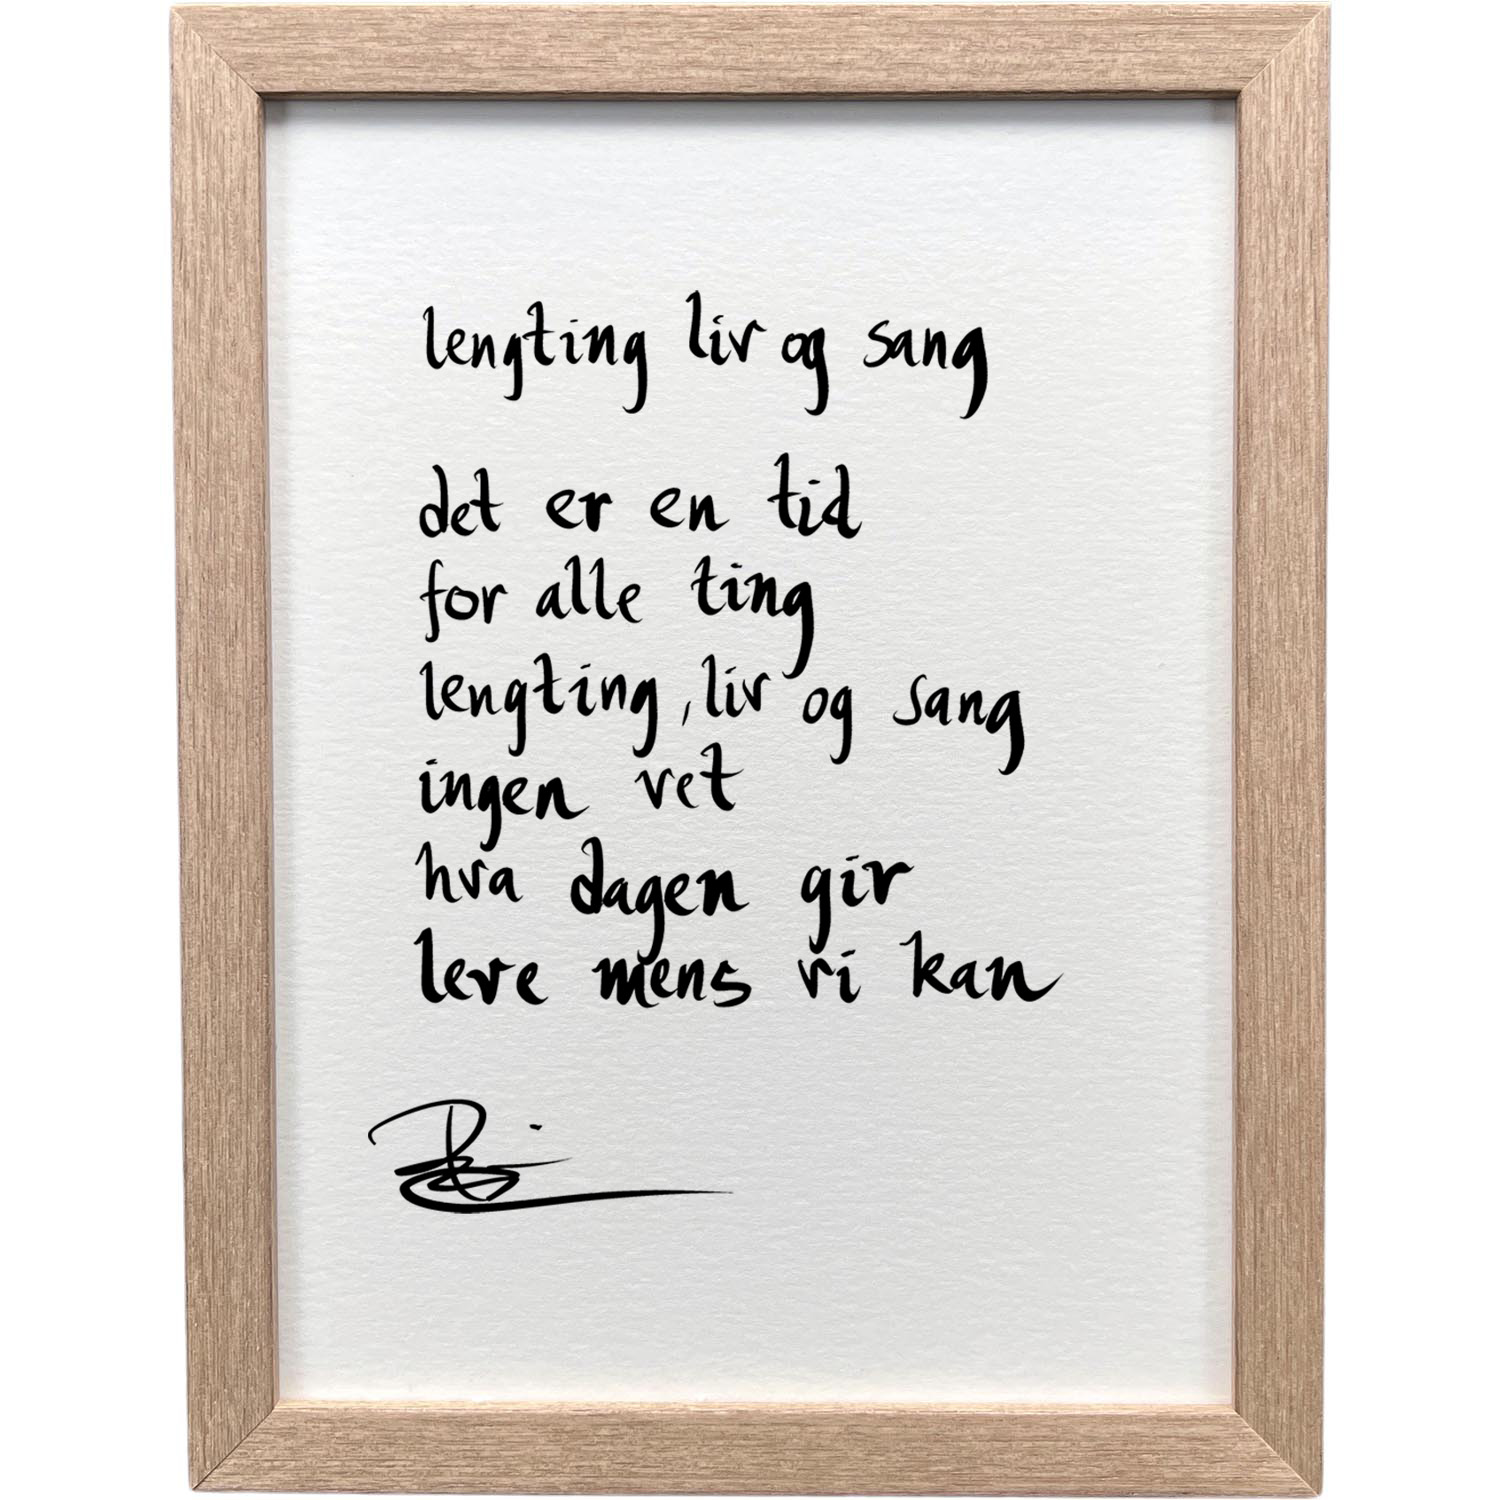 lengting liv og sang
det er en tid
for alle ting
lengting, liv og sang
ingen vet
hva dagen gir
leve mens vi kan